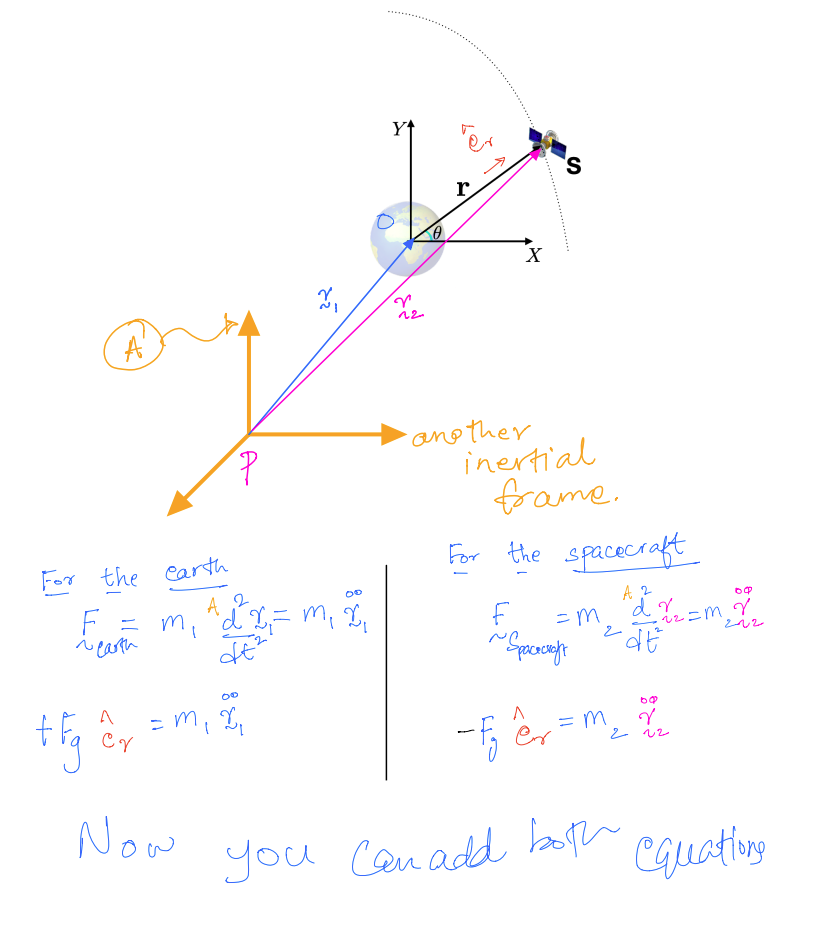 Y
ê_r
S
r
O
θ
X
r̰₁
r̰₂
A
another
inertial
frame.
P
For the earth
F̰_earth = m₁ ᴬd²r̰₁/dt² = m₁ r̰̈₁
+Fg ê_r = m₁ r̰̈₁
For the spacecraft
F̰_Spacecraft = m₂ ᴬd²/dt² r̰₂ = m₂ r̰̈₂
-Fg ê_r = m₂ r̰̈₂
Now you can add both equations